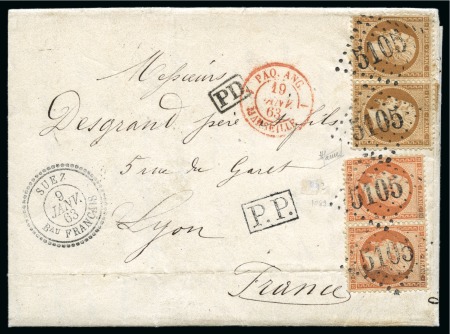 Messieurs
Desgrand père et fils
5 rue de Garet
Lyon
France
PD
PAQ. ANG.
19
JANV.
63
MARSEILLE
SUEZ
9
JANV.
63
Bau FRANCAIS
P.P.
5105
5105
5105
5105